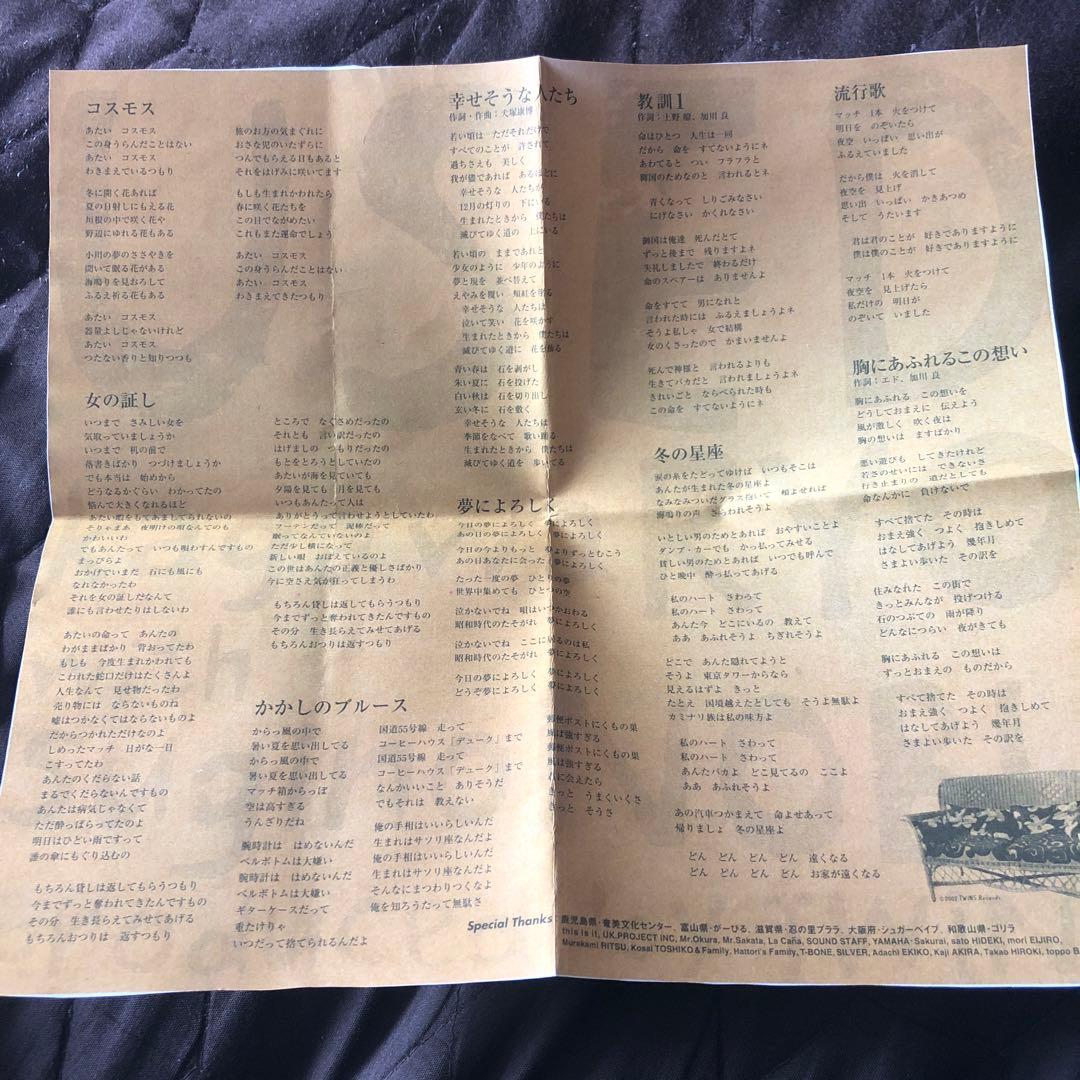 コスモス
あたい　コスモス
この身うらんだことはない
あたい　コスモス
わきまえているつもり
冬に開く花あれば
夏の日射しにもえる花
垣根の中で咲く花や
野辺にゆれる花もある
小川の夢のささやきを
聞いて眠る花がある
海鳴りを見おろして
ふるえ祈る花もある
あたい　コスモス
器量よしじゃないけれど
あたい　コスモス
つたない香りと知りつつも
旅のお方の気まぐれに
おさな児のいたずらに
つんでもらえる日もあると
それをはげみに咲いてます
もしも生まれかわれたら
春に咲く花たちを
この目でながめたい
これもまた運命でしょう
あたい　コスモス
この身うらんだことはない
あたい　コスモス
わきまえてきたつもり
女の証し
いつまで　さみしい女を
気取っていましょうか
いつまで　机の前で
落書きばかり　つづけましょうか
でも本当は　始めから
どうなるかぐらい　わかってたの
悩んで大きくなれるほど
あたい暇をもてあましてられないの
そりゃまあ　夜明けの唄なんてのも
かわいいわ
でもあんたって　いつも唄わすんですもの
まっぴらよ
おかげでいまだ　石にも風にも
なれなかったわ
それを女の証しだなんて
誰にも言わせたりはしないわ
あたいの命って　あんたの
わがままばかり　背おってたわ
もしも　今度生まれかわれても
こわれた蛇口だけはたくさんよ
人生なんて　見せ物だったわ
売り物には　ならないものね
嘘はつかなくてはならないものよ
だからつかれただけなのよ
しめったマッチ　日がな一日
こすってたわ
あんたのくだらない話
まるでくだらないんですもの
あんたは病気じゃなくて
ただ酔っぱらってたのよ
明日はひどい雨ですって
誰の傘にもぐり込むの
もちろん貸しは返してもらうつもり
今までずっと奪われてきたんですもの
その分　生き長らえてみせてあげる
もちろんおつりは　返すつもり
ところで　なぐさめだったの
それとも　言い訳だったの
はげましの　つもりだったの
もとをとろうとしていたの
あたいが海を見ていても
夕陽を見ても　月を見ても
いつもあんたって人は
ありがとうって言わせようとしていたわ
フーテンだって　泥棒だって
眠ってなんていないのよ
ただ少し横になって
新しい唄　おぼえているのよ
この世はあんたの正義と優しさばかり
今に空さえ気が狂ってしまうわ
もちろん貸しは返してもらうつもり
今までずっと奪われてきたんですもの
その分　生き長らえてみせてあげる
もちろんおつりは返すつもり
かかしのブルース
からっ風の中で
暑い夏を思い出してる
からっ風の中で
暑い夏を思い出してる
マッチ箱からっぽ
空は高すぎる
うんざりだね
腕時計は　はめないんだ
ベルボトムは大嫌い
腕時計は　はめないんだ
ベルボトムは大嫌い
ギターケースだって
重たけりゃ
いつだって捨てられるんだよ
国道55号線　走って
コーヒーハウス「デューク」まで
国道55号線　走って
コーヒーハウス「デューク」まで
なんかいいこと　ありそうだ
でもそれは　教えない
俺の手相はいいらしいんだ
生まれはサソリ座なんだよ
俺の手相はいいらしいんだ
生まれはサソリ座なんだよ
そんなにまつわりつくなよ
俺を知ろうたって無駄さ
幸せそうな人たち
作詞・作曲：犬塚康博
若い頃は ただそれだけで
すべてのことが　許されて
過ちさえも　美しく
我が儘であれば　あるほどに
幸せそうな　人たちが
12月の灯りの　下にいる
生まれたときから　僕たちは
滅びてゆく道の　上にいる
若い頃の　ままであれと
少女のように　少年のように
夢と現を　並べ替えて
えやみを覆い　頬紅を
幸せそうな　人たちは
泣いて笑い　花を咲かす
生まれたときから　僕たちは
滅びてゆく道に　花を飾る
青い春は　石を剥がし
朱い夏に　石を投げた
白い秋は　石を切り出し
玄い冬に　石を敷く
幸せそうな　人たちは
季節をなべて　歌い踊る
生まれたときから　僕たちは
滅びてゆく道を　歩いてる
夢によろしく
今日の夢によろしく　夢によろしく
あの日の夢によろしく　夢によろしく
今日の今よりもっと　よりずっとむこう
あの日あなたに会った　夢によろしく
たった一度の夢　ひとりの夢
世界中集めても　ひとつの空
泣かないでね　唄はいつかおわる
昭和時代のたそがれ　夢によろしく
泣かないでね　ここに居るのは私
昭和時代のたそがれ　夢によろしく
今日の夢によろしく　夢によろしく
どうぞ夢によろしく　夢によろしく
郵便ポストにくもの巣
風は強すぎる
郵便ポストにくもの巣
風は強すぎる
君に会えたら
きっと　うまくいくさ
きっと　そうさ
教訓1
作詞：上野 瞭、加川 良
命はひとつ　人生は一回
だから　命を　すてないようにネ
あわてると　つい　フラフラと
御国のためなのと　言われるとネ
青くなって　しりごみなさい
にげなさい　かくれなさい
御国は俺達　死んだとて
ずっと後まで　残りますよネ
失礼しましたで　終わるだけ
命のスペアーは　ありませんよ
命をすてて　男になれと
言われた時には　ふるえましょうよネ
そうよ私しゃ　女で結構
女のくさったので　かまいませんよ
死んで神様と　言われるよりも
生きてバカだと　言われましょうよネ
きれいごと　ならべられた時も
この命を　すてないようにネ
冬の星座
涙の糸をたどってゆけば　いつもそこは
あんたが生まれた冬の星座よ
なみなみついだグラス抱いて　頬よせれば
海鳴りの声　さらわれそうよ
いとしい男のためとあれば　おやすいことよ
ダンプ・カーでも　かっ払ってみせる
貧しい男のためとあれば　いつでも呼んで
ひと晩中　酔っ払ってあげる
私のハート　さわって
私のハート　さわって
あんた今　どこにいるの　教えて
ああ　あふれそうよ　ちぎれそうよ
どこで　あんた隠れてようと
そうよ　東京タワーからなら
見えるはずよ　きっと
たとえ　国境越えたとしても　そうよ無駄よ
カミナリ族は私の味方よ
私のハート　さわって
私のハート　さわって
あんたバカよ　どこ見てるの　ここよ
ああ　あふれそうよ
あの汽車つかまえて　命よせあって
帰りましょ　冬の星座よ
どん　どん　どん　どん　遠くなる
どん　どん　どん　どん　お家が遠くなる
流行歌
マッチ　1本　火をつけて
明日を　のぞいたら
夜空　いっぱい　思い出が
ふるえていました
だから僕は　火を消して
夜空を　見上げ
思い出　いっぱい　かきあつめ
そして　うたいます
君は君のことが　好きでありますように
僕は僕のことが　好きでありますように
マッチ　1本　火をつけて
夜空を　見上げたら
私だけの　明日が
のぞいて　いました
胸にあふれるこの想い
作詞：エド、加川 良
胸にあふれる　この想いを
どうしておまえに　伝えよう
風が激しく　吹く夜は
胸の想いは　ますばかり
悪い遊びも　してきたけれど
若さのせいには　できないさ
行き止まりの　道だとしても
命なんかに　負けないで
すべて捨てた　その時は
おまえ強く　つよく　抱きしめて
はなしてあげよう　幾年月
さまよい歩いた　その訳を
住みなれた　この街で
きっとみんなが　投げつける
石のつぶての　雨が降り
どんなにつらい　夜がきても
胸にあふれる　この想いは
ずっとおまえの　ものだから
すべて捨てた　その時は
おまえ強く　つよく　抱きしめて
はなしてあげよう　幾年月
さまよい歩いた　その訳を
©2002 TWINS Records
Special Thanks
鹿児島県・奄美文化センター、富山県・がーひる、滋賀県・忍の里プララ、大阪府・シュガーベイブ、和歌山県・ゴリラ
this is it, UK.PROJECT INC, Mr.Okura, Mr.Sakata, La Caña, SOUND STAFF, YAMAHA・Sakurai, sato HIDEKI, mori EIJIRO,
Murakami RITSU, Kosai TOSHIKO & Family, Hattori's Family, T-BONE, SILVER, Adachi EKIKO, Kaji AKIRA, Takao HIROKI, toppo